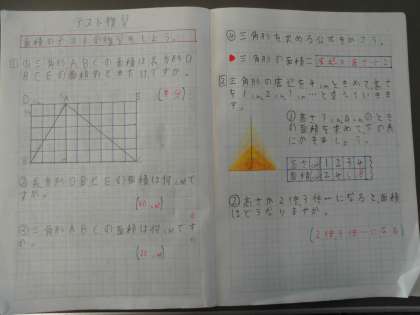 テスト練習
面積のテストの練習をしよう。
①三角形ABCの面積は長方形D
BCEの面積の
ですか。
D A E
B C
②長方形DBCEの面積は何㎠で
すか。
③三角形ABCの面積は何㎠です
か。
④三角形を求める公式をかこう。
三角形の面積＝底辺×高さ÷2
②三角形の底辺を4㎝ときめて高さ
を1㎝、2㎝、…と変えていきま
す。
①高さ1㎝、2㎝のとき
の面積を求めて下の表
にかきましょう。
高さ㎝ 1 2 3 4
面積㎠ 2 4 6 8
②高さが2倍、3倍…になると、面積
はどうなりますか。
(2倍、3倍…になる)